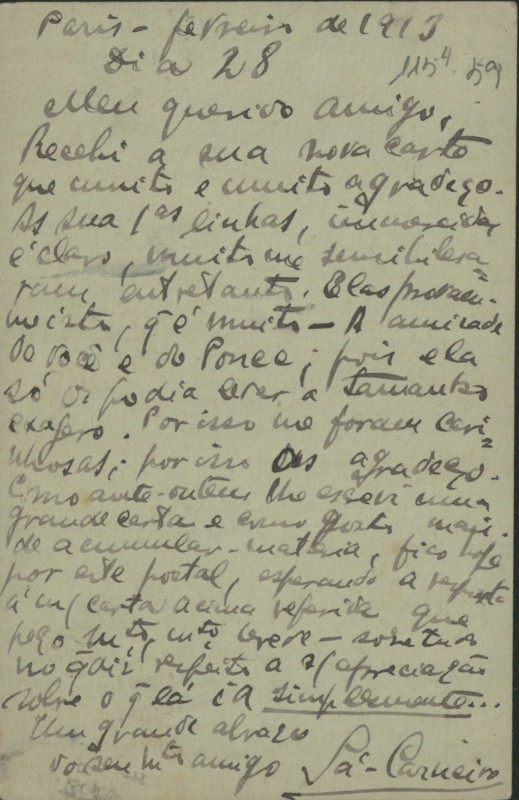 Paris – fevreiro de 1913
Dia 28
115⁴ 59
Meu querido amigo,
Recebi a sua nova carta
que muito e muito agradeço.
As sua 1as linhas, immerecidas
é claro, muito me sensibilisa-
ram, entretanto. Elas provam-
me isto, q é muito – A amizade
de você e do Ponce; pois ela
só os podia levar a tamanho
exagero. Por isso me foram cari-
nhosas; por isso as agradeço.
Como ante-ontem lhe escrevi uma
grande carta e como gosto mais
de acumular materia, fico hoje
por este postal, esperando a resposta
á m/ carta acima referida que
peço mto, mto breve – sobretudo
no q diz respeito a s/ apreciação
sobre o q lá ia simplesmente...
Um grande abraço
do seu mto amigo Sá-Carneiro